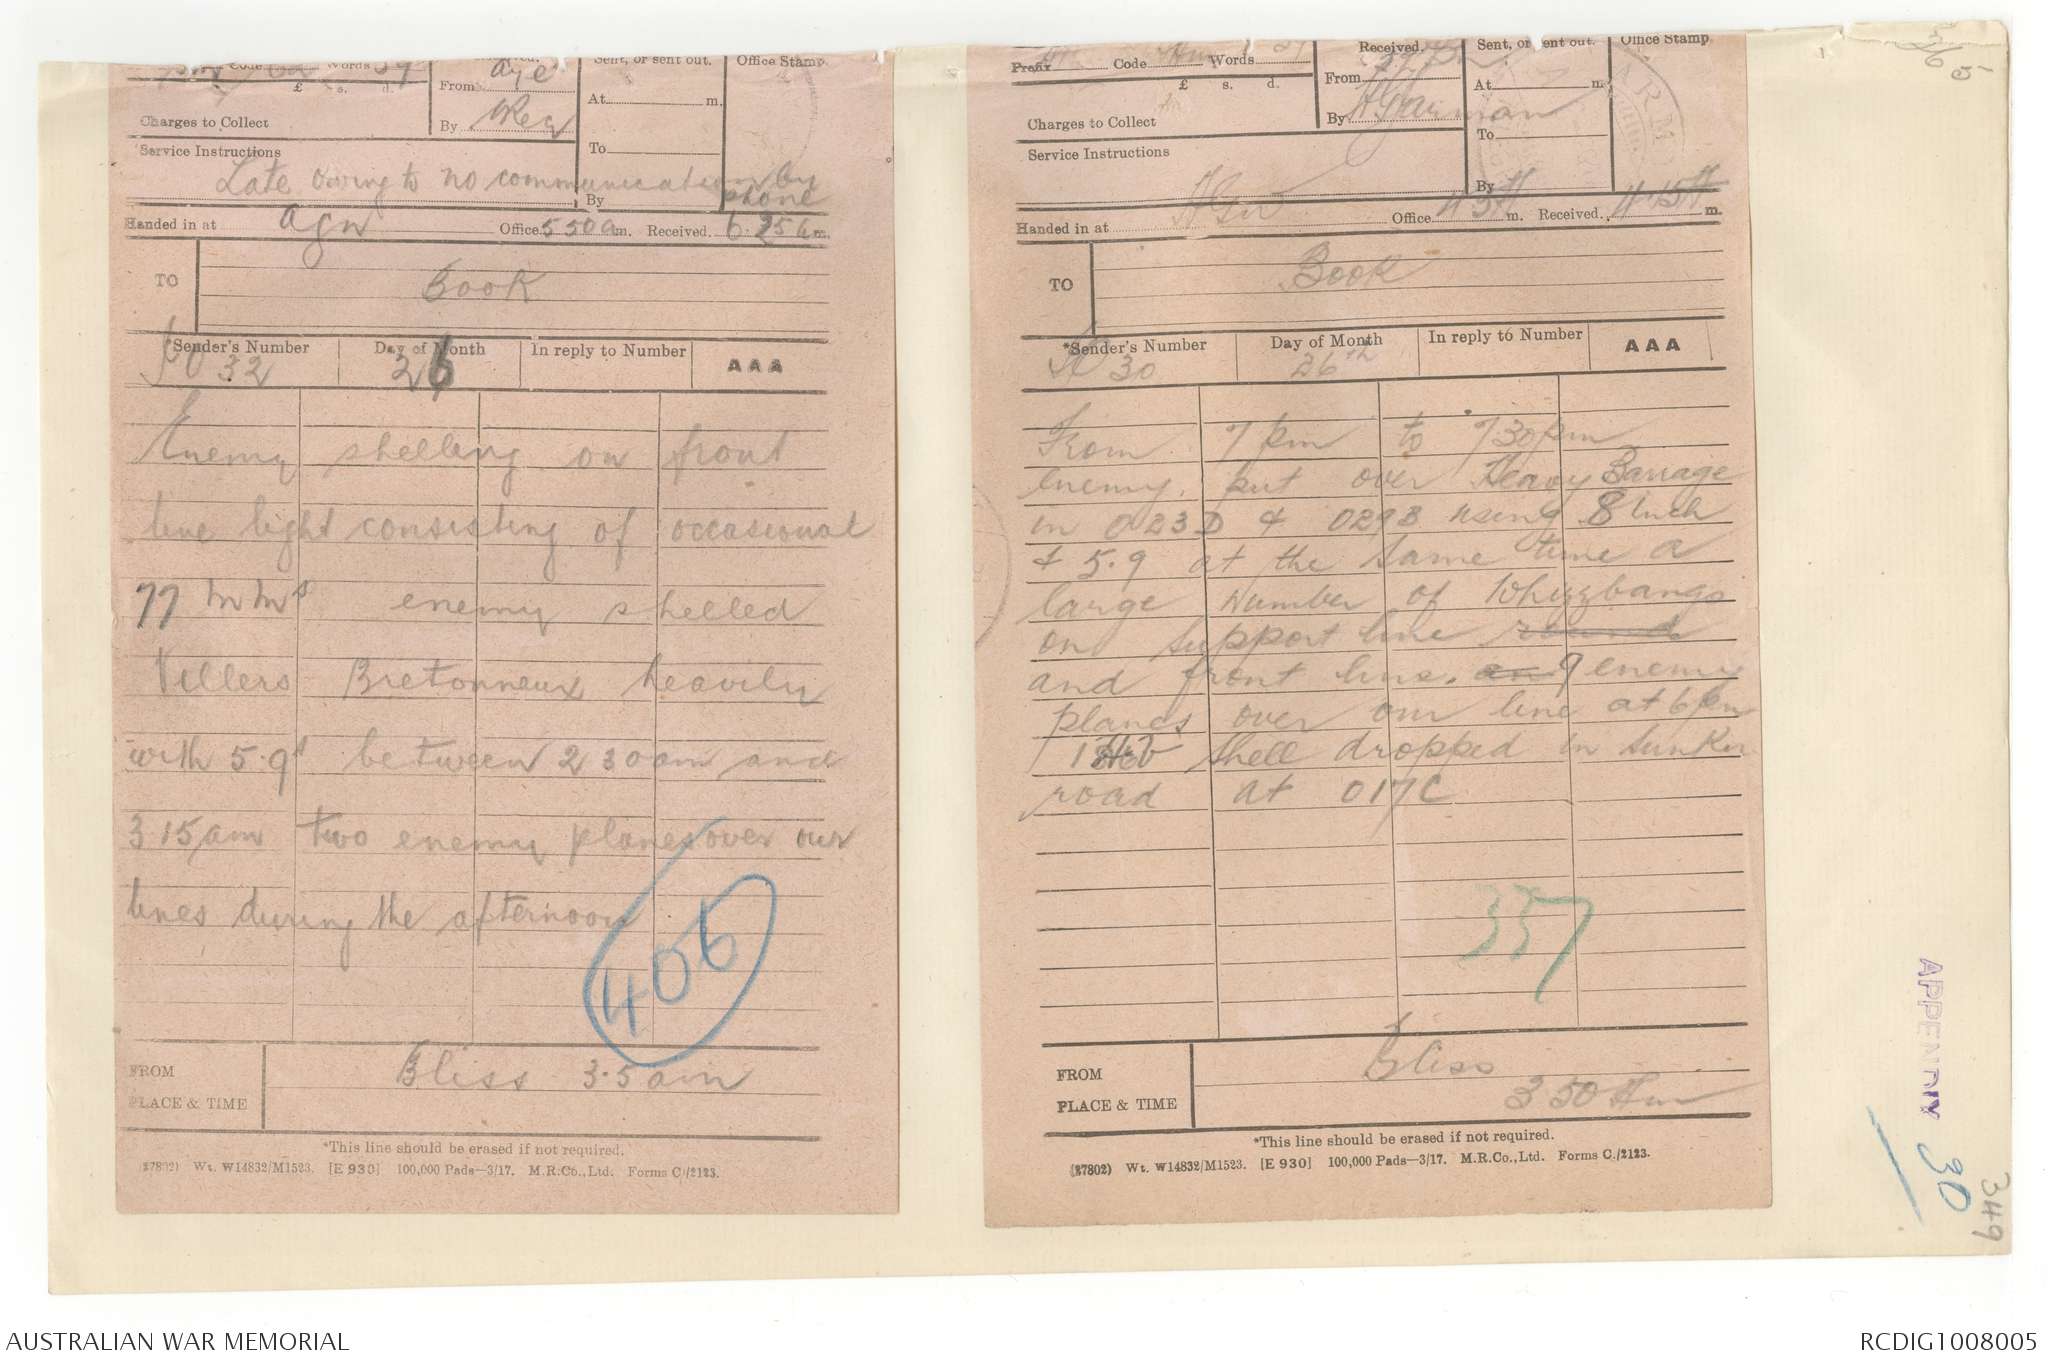 Code Words
£ s. d.
Charges to Collect
From aye
By
Sent, or sent out.
At m.
To
By
Office Stamp.
Service Instructions
Late owing to no communication by
phone
Handed in at agn Office 5 50 a m. Received. 6.25 a m.
TO Book
*Sender's Number Day of Month In reply to Number AAA
32 26
Enemy shelling on front
line light consisting of occasional
77 mms enemy shelled
Villers Bretonneux heavily
with 5.9s between 2 30 am and
3 15 am two enemy planes over our
lines during the afternoon
406
FROM Bliss 3.5 am
PLACE & TIME
*This line should be erased if not required.
(27802) Wt. W14832/M1523. [E 930] 100,000 Pads—3/17. M.R.Co., Ltd. Forms C./2123.
Prefix Code Words
£ s. d.
Charges to Collect
Received.
From
By
Sent, or sent out.
At m.
To
By
Office Stamp
ARMY
Service Instructions
Handed in at Office m. Received. m.
TO Book
*Sender's Number Day of Month In reply to Number AAA
30 26th
From 7 pm to 730 pm
enemy. put over Heavy Barrage
in 023D & 029B using 8 inch
& 5.9 at the same time a
large number of Whizzbangs
on support line round
and front line. an 9 enemy
planes over our line at 6 pm
1 shell dropped in sunken
road at 017C
357
FROM Bliss
PLACE & TIME 3 50
*This line should be erased if not required.
(27802) Wt. W14832/M1523. [E 930] 100,000 Pads—3/17. M.R.Co., Ltd. Forms C./2123.
APPENDIX 30
349
AUSTRALIAN WAR MEMORIAL
RCDIG1008005